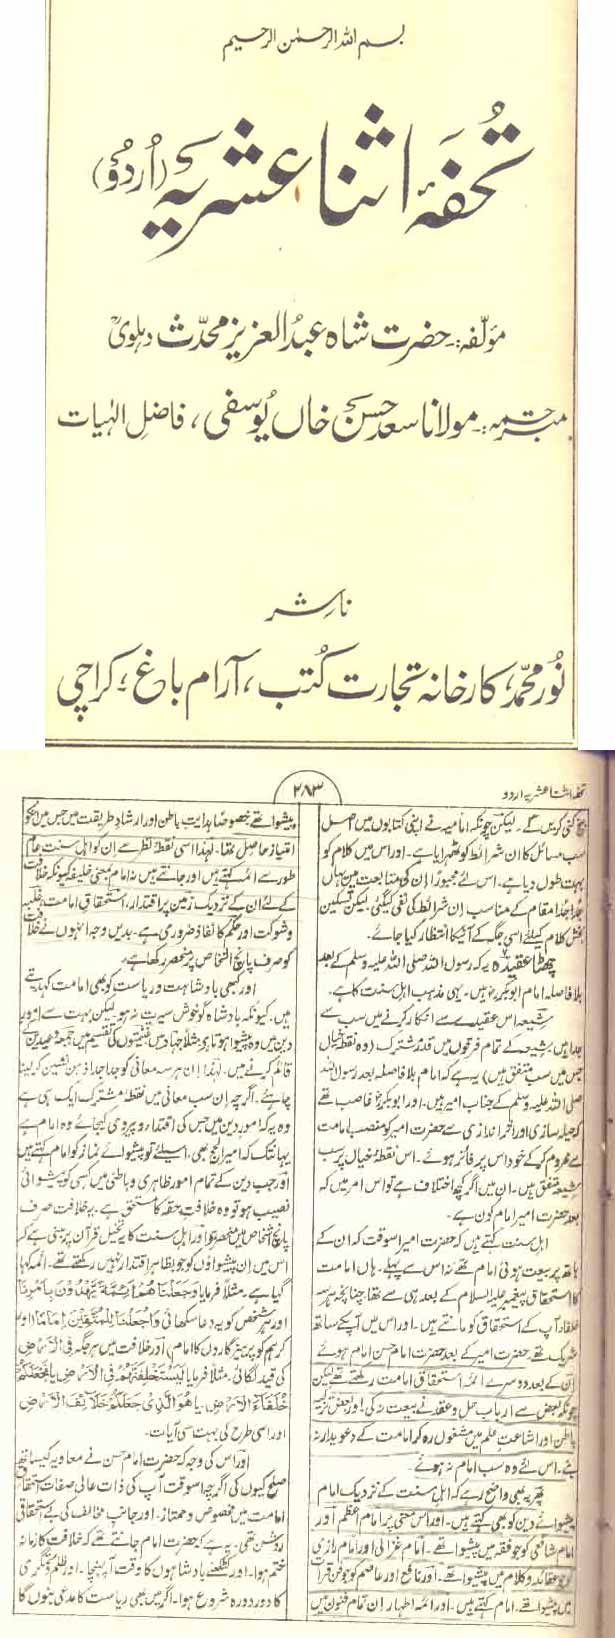 بسم اللہ الرحمٰن الرحیم
تحفۂ اثنا عشریہ (اُردو)
مؤلفہ:۔ حضرت شاہ عبدُالعزیز محدّث دہلویؒ
مترجمہ:۔ مولانا سعد حسن خاں یُوسفی، فاضلِ الٰہیات
ناشر
نُور محمّد، کارخانہ تجارت کُتب، آرام باغ، کراچی
تحفہ اثنا عشریہ اردو
۲۸۳
لیکن چونکہ امامیہ نے اپنی کتابوں میں اصل
سب مسائل کا ان شرائط کو ٹھہرایا ہے۔ اور اس میں کلام کو
بہت طول دیا ہے۔ اس لئے مجبوراً ان کی متابعت میں یہاں
جداجدا مقام کے مناسب ان شرائط کی نفی کیگئی لیکن تسکین
بخش کلام کیلئے اسی جگہ کے آنیکا انتظار کیا جائے۔
چھٹا عقیدہ یہ کہ رسول اللہ صلی اللہ علیہ وسلم کے بعد
بلا فاصلہ امام ابوبکرؓ ہیں۔ یہی مذہب اہل سنت کا ہے۔
شیعہ اس عقیدے سے انکار کرنے میں سب سے
جدا ہیں شیعہ کے تمام فرقوں میں قدر مشترک (وہ نقطۂ خیال
جس میں سب متفق ہیں) یہ ہے کہ امام بلا فاصلہ بعد رسول اللہ
صلی اللہ علیہ وسلم کے جناب امیر ہیں۔ اور ابوبکرؓ غاصب تھے
کہ حیلہ سازی اور افترا پردازی سے حضرت امیر کو منصب امامت
سے محروم کر کے خود اس پر فائز ہوئے۔ اس نقطۂ خیال پر سب
شیعہ متفق ہیں۔ ان میں اگر کچھ اختلاف ہے تو اس امر میں کہ
بعد حضرت امیر امام کون ہے۔
اہل سنت کہتے ہیں کہ حضرت امیر اسوقت کہ ان کے
ہاتھ پر بیعت ہوئی امام تھے نہ اس سے پہلے۔ ہاں امامت
کا استحقاق پیغمبر علیہ السلام کے بعد ہی سے تھا چنانچہ ہر سہ
خلفاء آپ کے استحقاق کو مانتے ہیں۔ اور اس میں آپکے ساتھ
شریک تھے حضرت امیر کے بعد حضرت امام حسن امام ہوئے
ان کے بعد دوسرے ائمہ استحقاق امامت رکھتے تھے لیکن
چونکہ بعض سے ارباب حل و عقد نے بیعت نہ کی اور بعض تربیت
باطن اور اشاعت علم میں مشغول رہ کر امامت کے دعویدار نہ
بنے۔ اس لئے وہ سب امام نہ ہوئے۔
پھر یہ بھی واضح رہے کہ اہل سنت کے نزدیک امام
پیشوائے دین کو بھی کہتے ہیں۔ اور اس معنی پر امام اعظم اور
امام شافعی کو جو فقہ میں پیشوا تھے۔ امام غزالی اور امام رازی
کو جو عقائد و کلام میں پیشوا تھے۔ اور نافع اور عاصم کو جو فن قرأت
میں پیشوا تھے۔ امام کہتے ہیں۔ اور ائمہ اطہار ان تمام فنون میں
پیشوا تھے خصوصاً ہدایت باطن اور ارشاد طریقت میں جس میں انکو
امتیاز حاصل تھا۔ لہٰذا اسی نقطۂ نظر سے ان کو اہل سنت عام
طور سے ائمہ کہتے ہیں اور جانتے ہیں نہ امام بمعنی خلیفہ کیونکہ خلافت
کے لئے ان کے نزدیک زمین پر اقتدار، استحقاق امامت، غلبہ
و شوکت اور حکم کا نفاذ ضروری ہے۔ بدیں وجہ انہوں نے خلافت
کو صرف پانچ اشخاص پر منحصر رکھا ہے۔
اور کبھی بادشاہت و ریاست کو بھی امامت کہدیتے
ہیں۔ کیونکہ بادشاہ گو خوش سیرت نہ ہو لیکن بہت سے امور
دین میں وہ پیشوا ہوتا ہے مثلاً جہاد میں غنیمتوں کی تقسیم میں جمعہ و عیدین کے
قائم کرنے میں۔ لہٰذا ان ہر سہ معانی کو جدا جدا ذہن نشین کر لینا
چاہئے۔ اگرچہ ان سب معانی میں نقطۂ مشترک ایک ہی ہے
وہ یہ کہ امور دین میں جس کی اقتداء و پیروی کی جائے وہ امام ہے
یہانتک کہ امیر الحج بھی۔ اسیلئے تو پیشوائے نماز کو امام کہتے ہیں
اور جب دین کے تمام امور ظاہری و باطنی میں کسی کو پیشوائی
نصیب ہو تو وہ خلافت حقہ کا مستحق ہے۔ یہ خلافت صرف
پانچ اشخاص میں منحصر ہوئی اور اہل سنت کا یہ تخیل قرآن پر مبنی ہے کہ
اس میں ان پیشواؤں کو جو بظاہر اقتدار نہیں رکھتے تھے۔ ائمہ کہا
گیا ہے۔ مثلاً فرمایا وَجَعَلْنَا هُمْ اَئِمَّةً یَّهْدُوْنَ بِاَمْرِنَا
اور ہر شخص کو یہ دعا سکھائی وَاجْعَلْنَا لِلْمُتَّقِیْنَ اِمَامًا (اور
کر ہم کو پرہیزگاروں کا امام) اور خلافت میں ہر جگہ فِی الْاَرْضِ
کی قید لگائی۔ مثلاً فرمایا لَیَسْتَخْلِفَنَّهُمْ فِی الْاَرْضِ یا یَجْعَلُکُمْ
خُلَفَآءَ الْاَرْضِ۔ یا هُوَ الَّذِیْ جَعَلَکُمْ خَلَآئِفَ الْاَرْضِ
اور اسی طرح کی بہت سی آیات۔
اور اس کی وجہ کہ حضرت امام حسن نے معاویہ کیساتھ
صلح کیوں کی اگرچہ اسوقت آپ کی ذات عالی صفات استحقاق
امامت میں مخصوص و ممتاز۔ اور جانب مخالف کی بے استحقاقی
روشن تھی۔ یہ ہے کہ حضرت امام جانتے تھے کہ خلافت کا زمانہ
ختم ہوا۔ اور کٹکھنے بادشاہوں کا وقت آ پہنچا۔ اور ظلم و بیدادگری
کا دور دورہ شروع ہوا۔ اگر میں بھی ریاست کا مدعی بنوں گا